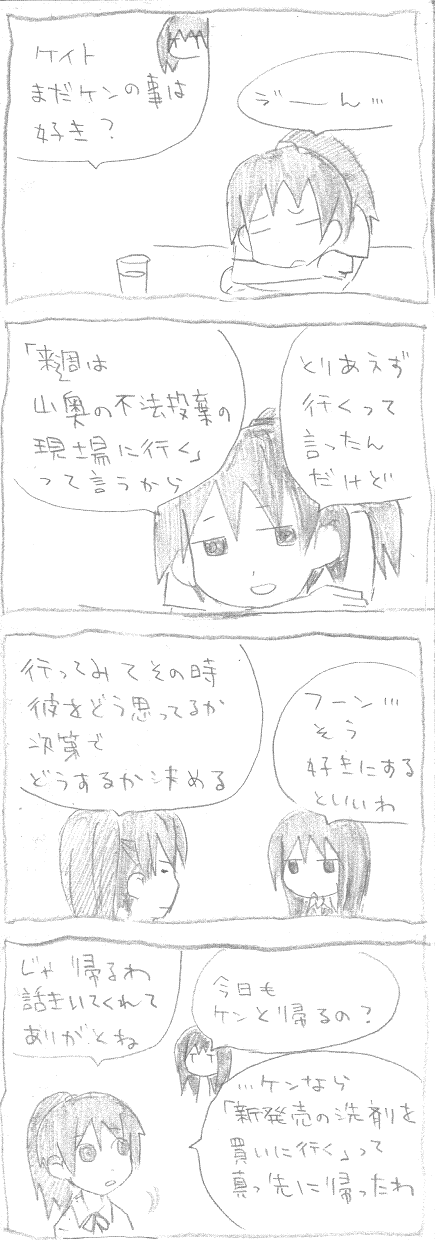 ケイト
まだケンの事は
好き?
う゛ーん…
とりあえず
行くって
言ったん
だけど
「来週は
山奥の不法投棄の
現場に行く」
って言うから
フーン…
そう
好きにする
といいわ
行ってみてその時
彼をどう思ってるか
次第で
どうするか決める
じゃ帰るわ
話きいてくれて
ありがとね
今日も
ケンと帰るの?
…ケンなら
「新発売の洗剤を
買いに行く」って
真っ先に帰ったわ